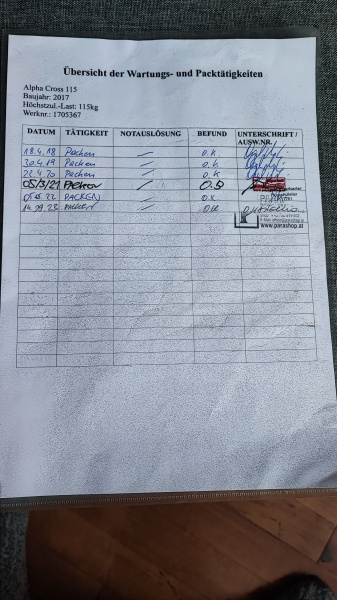 Übersicht der Wartungs- und Packtätigkeiten
Alpha Cross 115
Baujahr: 2017
Höchstzul.-Last: 115kg
Werknr.: 1705367
DATUM TÄTIGKEIT NOTAUSLÖSUNG BEFUND UNTERSCHRIFT / AUSW.NR.
18.4.18 Packen — o.k.
30.4.19 Packen — o.k.
22.4.20 Packen — o.k.
05/3/21 —
22 PACKEN — O.K
23 PACKEN — OK
www.parashop.at